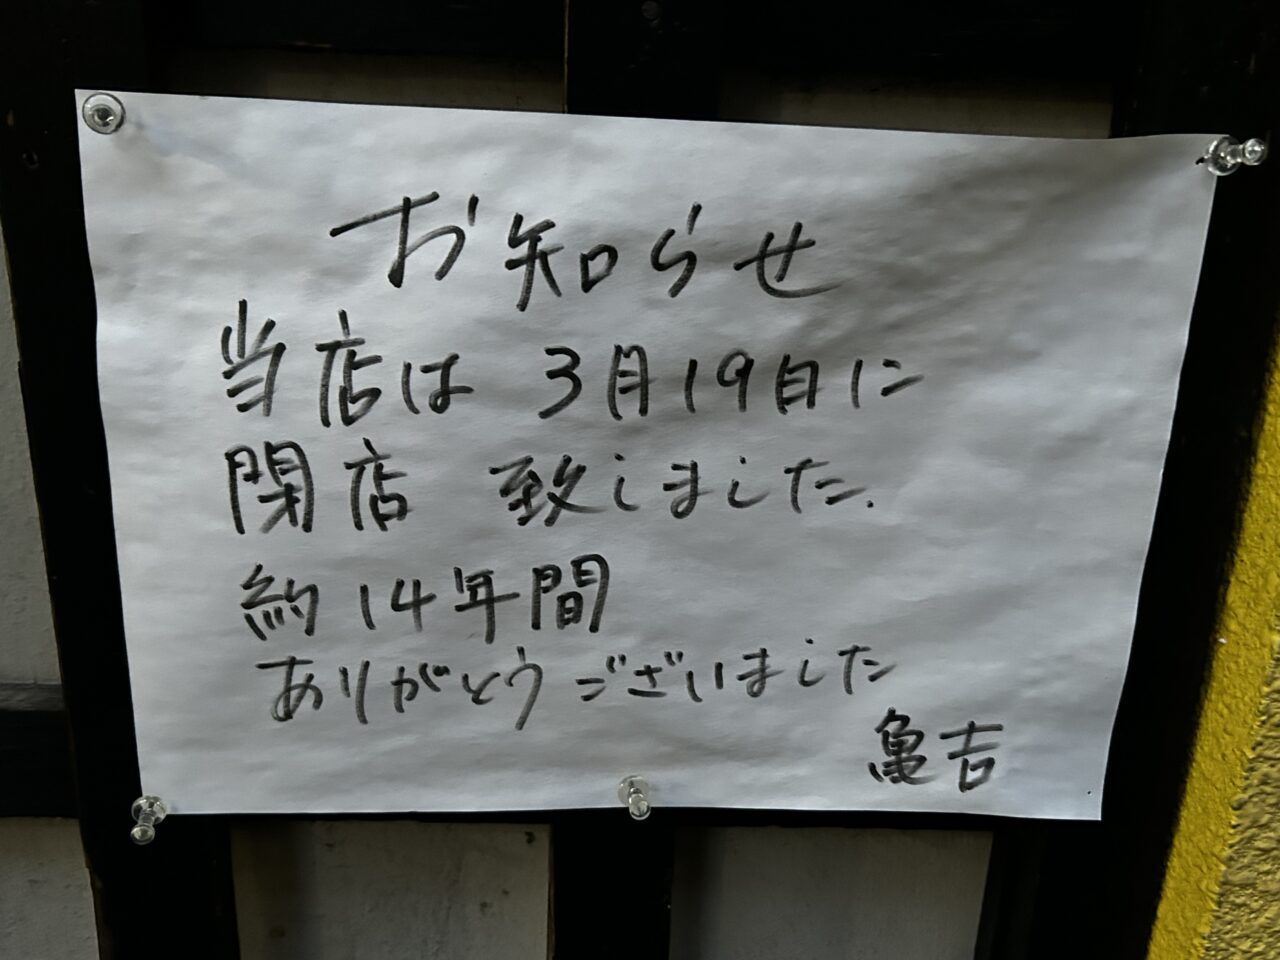 お知らせ
当店は 3月19日に
閉店 致しました.
約14年間
ありがとうございました
亀吉